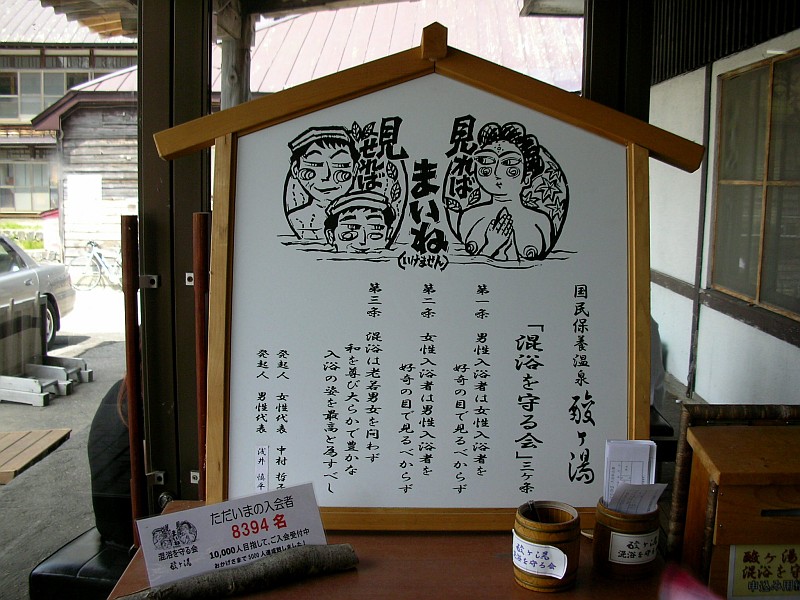 見れば
見せれば
まいね
(いけません)
国民保養温泉 酸ヶ湯
「混浴を守る会」三ヶ条
第一条 男性入浴者は女性入浴者を
好奇の目で見るべからず
第二条 女性入浴者は男性入浴者を
好奇の目で見るべからず
第三条 混浴は老若男女を問わず
和を尊び大らかで豊かな
入浴の姿を最高と為すべし
発起人 女性代表 中村 哲子
発起人 男性代表 浅井 慎平
ただいまの入会者
8394 名
10,000人目指して、ご入会受付中
おかげさまで5000人達成しました
混浴を守る会
酸ヶ湯
酸ヶ湯
混浴を守る会
酸ヶ湯
混浴を守る会
酸ヶ湯
混浴を守る会